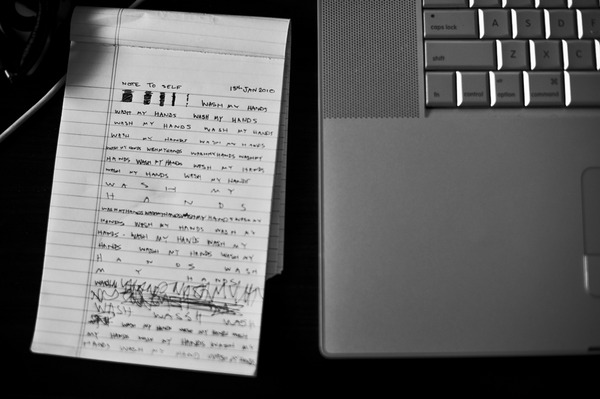 NOTE TO SELF 13TH JAN 2010
! WASH MY HANDS
WASH MY HANDS WASH MY HANDS
WASH MY HANDS WASH MY HANDS
WASH MY HANDS WASH MY HANDS
WASH MY HANDS WASH MY HANDS WASH MY HANDS WASH MY
HANDS WASH MY HANDS WASH MY HANDS
WASH MY HANDS WASH MY HANDS
WASH MY
HANDS
WASH MY HANDS WASH MY HANDS WASH MY HANDS WASH MY
HANDS WASH MY HANDS WASH MY
HANDS WASH MY HANDS WASH MY
HANDS WASH MY HANDS WASH MY
HANDS WASH
MY HANDS
WASH
WASH WASSH WASH
WASH MY HANDS WASH MY HANDS WASH
MY HANDS WASH MY HANDS WASH MY
HANDS WASH MY HANDS WASH MY HANDS
caps lock A S D F
shift Z X C
fn control option command